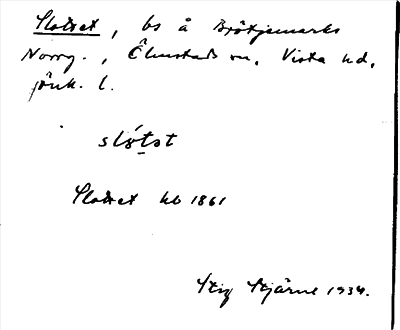 Slottet, bs å Brötjemarks
Norrg., Ölmstads sn, Vista hd,
jönk. l.
slo̍tst
Slottet hb 1861
Stig Stjärne 1934.